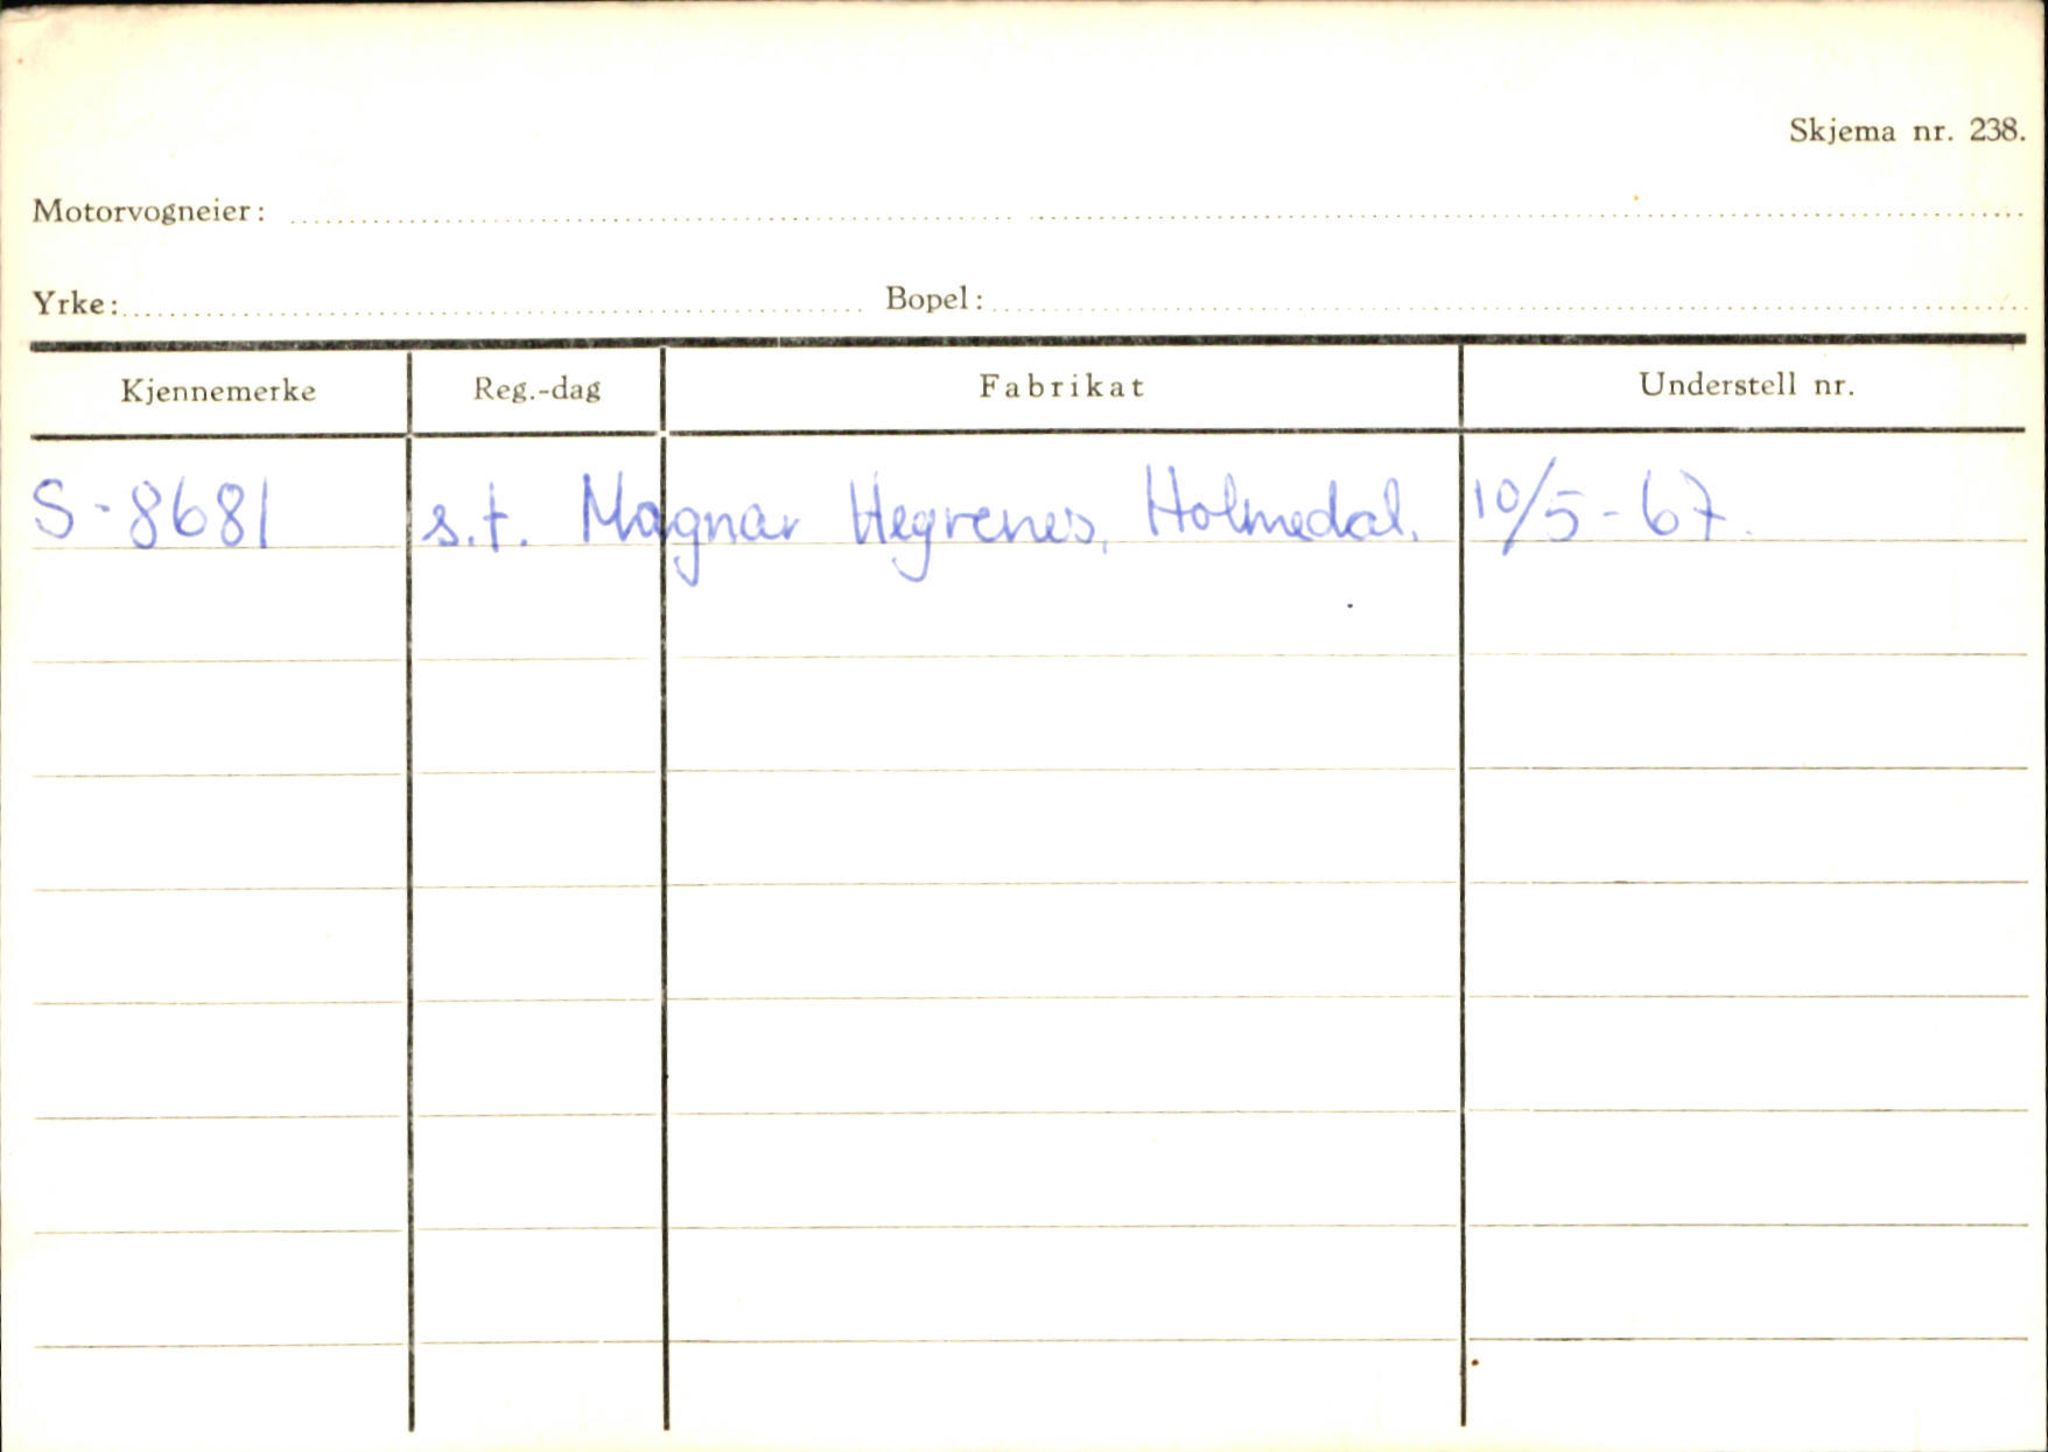 Skjema nr. 238.
Motorvogneier:
Yrke: Bopel:
Kjennemerke Reg.-dag Fabrikat Understell nr.
S-8681 s.t. Magnar Hegrenes, Holmedal. 10/5-67.